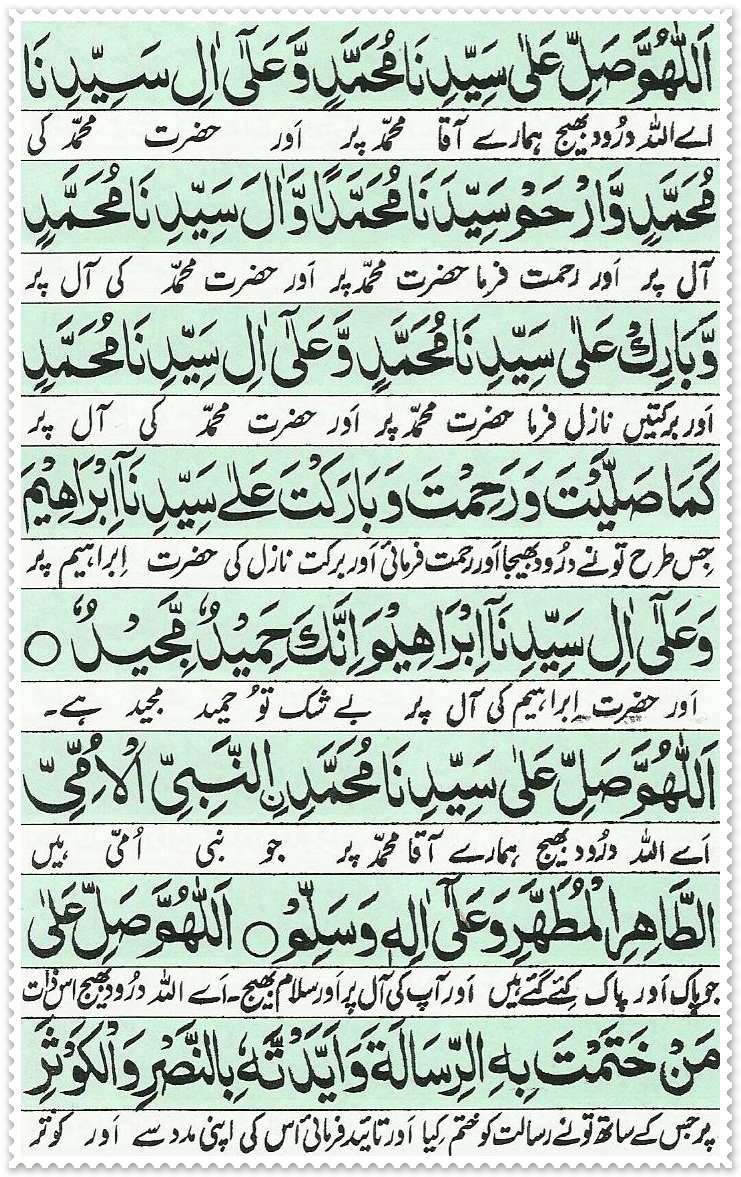 اَللّٰهُمَّ صَلِّ عَلٰى سَيِّدِنَا مُحَمَّدٍ وَّعَلٰٓى اٰلِ سَيِّدِنَا
اے اللہ درُود بھیج ہمارے آقا محمّد پر اور حضرت محمّد کی
مُحَمَّدٍ وَّارْحَمْ سَيِّدَنَا مُحَمَّدًا وَّاٰلَ سَيِّدِنَا مُحَمَّدٍ
آل پر اور رحمت فرما حضرت محمّد پر اور حضرت محمّد کی آل پر
وَّبَارِكْ عَلٰى سَيِّدِنَا مُحَمَّدٍ وَّعَلٰٓى اٰلِ سَيِّدِنَا مُحَمَّدٍ
اور برکتیں نازل فرما حضرت محمّد پر اور حضرت محمّد کی آل پر
كَمَا صَلَّيْتَ وَرَحِمْتَ وَبَارَكْتَ عَلٰے سَيِّدِنَآ اِبْرَاهِيْمَ
جس طرح تونے درُود بھیجا اور رحمت فرمائی اور برکت نازل کی حضرت اِبراہیم پر
وَعَلٰٓى اٰلِ سَيِّدِنَآ اِبْرَاهِيْمَ اِنَّكَ حَمِيْدٌ مَّجِيْدٌ ○
اور حضرت اِبراہیم کی آل پر بے شک توُ حمید مجید ہے۔
اَللّٰهُمَّ صَلِّ عَلٰى سَيِّدِنَا مُحَمَّدِنِ النَّبِيِّ الْاُمِّيِّ
اَے اللہ درُود بھیج ہمارے آقا محمّد پر جو نبی اُمّی ہیں
الطَّاهِرِ الْمُطَهَّرِ وَعَلٰٓى اٰلِهٖ وَسَلِّمْ ○ اَللّٰهُمَّ صَلِّ عَلٰى
جو پاک اور پاک کِئے گئے ہیں اور آپ کی آل پر اور سلام بھیج۔ اَے اللہ درُود بھیج اس ذات
مَنْ خَتَمْتَ بِهِ الرِّسَالَةَ وَاَيَّدْتَّهٗ بِالنَّصْرِ وَالْكَوْثَرِ
پر جس کے ساتھ تونے رسالت کو ختم کیا اور تائید فرمائی اُس کی اپنی مدد سے اور کوثر